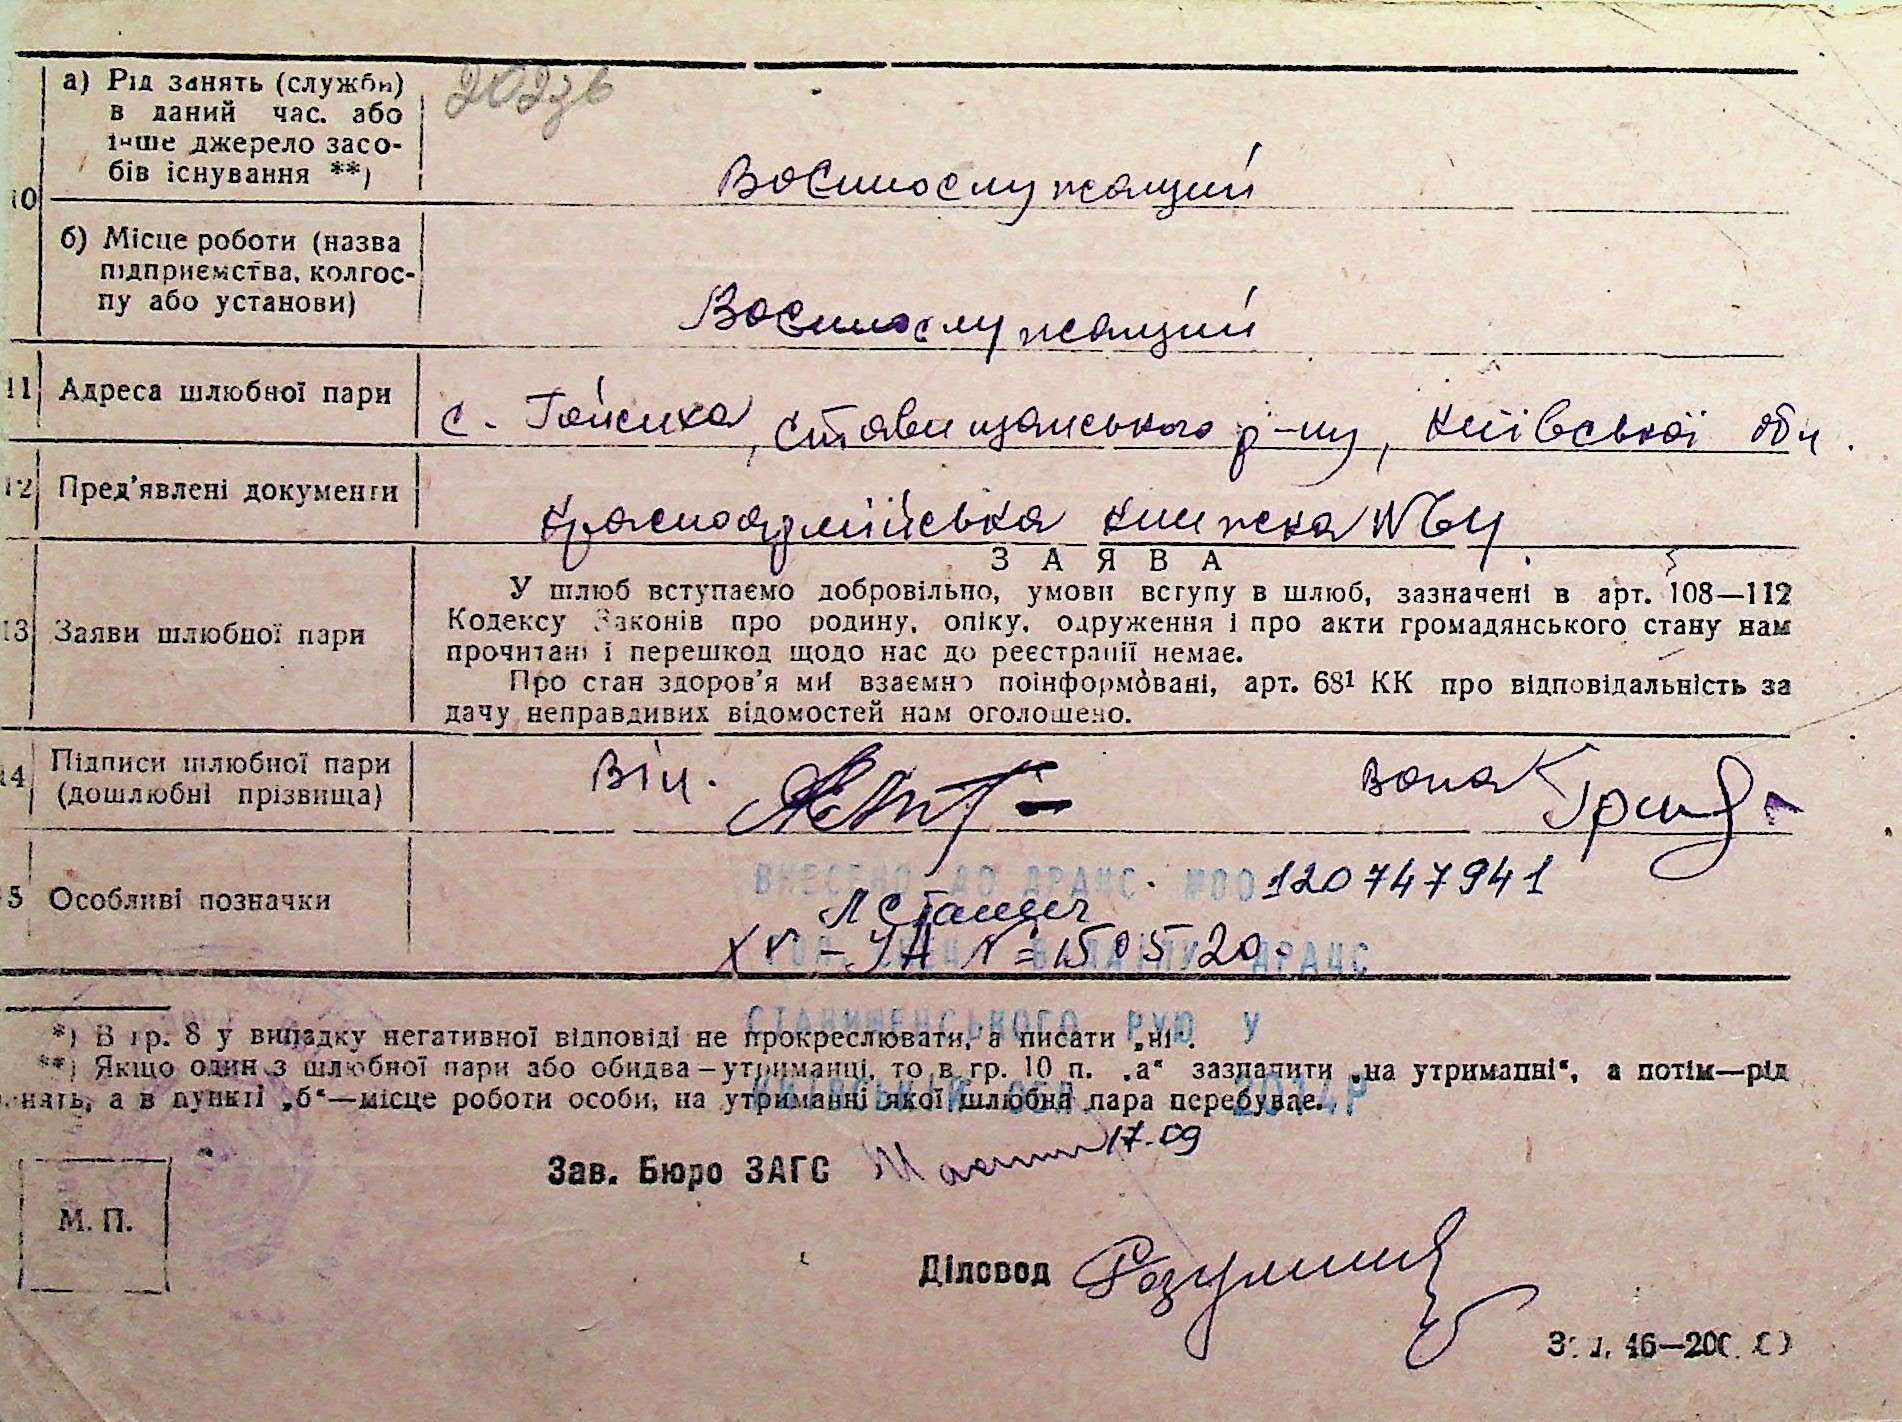 10
а) Рід занять (служби)
в даний час. або
інше джерело засо-
бів існування **)
Воєннослужащий
б) Місце роботи (назва
підприємства, колгос-
пу або установи)
Воєннослужащий
11 Адреса шлюбної пари
с. Гайсиха, Ставищанського р-ну, Київської обл.
12 Пред'явлені документи
Красноармійська книжка №
ЗАЯВА
13 Заяви шлюбної пари
У шлюб вступаємо добровільно, умови вступу в шлюб, зазначені в арт. 108—112
Кодексу Законів про родину, опіку, одруження і про акти громадянського стану нам
прочитані і перешкод щодо нас до реєстрації немає.
Про стан здоров'я ми взаємно поінформовані, арт. 68¹ КК про відповідальність за
дачу неправдивих відомостей нам оголошено.
14 Підписи шлюбної пари
(дошлюбні прізвища)
Він.
вона
ВНЕСЕНО ДО ДРАЦС. №00120747941
15 Особливі позначки
ВІДДІЛУ ДРАЦС
№ 150520.
СТАВИЩЕНСЬКОГО РУЮ У
*) В гр. 8 у випадку негативної відповіді не прокреслювати, а писати „ні“.
**) Якщо один з шлюбної пари або обидва—утриманці, то в гр. 10 п. „а“ зазначити „на утриманні“, а потім—рід
занять, а в пункті „б“—місце роботи особи, на утриманні якої шлюбна пара перебуває.
КИЇВСЬКІЙ ОБЛ. 2014Р
17.09
Зав. Бюро ЗАГС
М. П.
Діловод